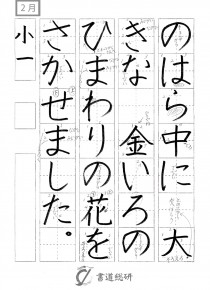 ２月
のはら中に 大
きな 金いろの
ひまわりの花を
さかせました。
小一
書道総研